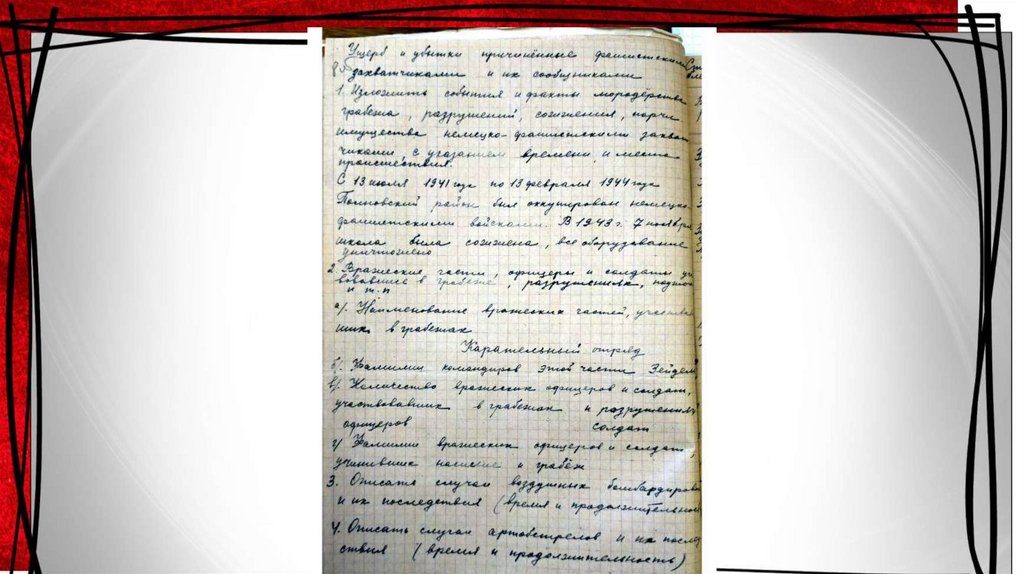 Ущерб и убытки причинённые фашистскими
захватчиками и их сообщниками
1. Изложить события и факты мородёрства
грабежа, разрушений, сожжения, порчи
имущества немецко-фашистскими захват
чиками с указанием времени и места
происшествия.
С 13 июля 1941 года по 13 февраля 1944 года
Полновский район был оккупирован немецко
фашистскими войсками. В 1943 г. 7 ноября
школа была сожжена, все оборудование
уничтожено
2. Вражеские части, офицеры и солдаты уч
вовавшие в грабеже, разрушениях,
и т.п
а). Наименование вражеских частей, участвов
ших в грабежах
Карательный отряд
б). Фамилии командиров этой части Зейдель
в). Количество вражеских офицеров и солдат,
участвовавших в грабежах и разрушениях
офицеров солдат
г) Фамилии вражеских офицеров и солдат,
учинивших насилие и грабёж
3. Описать случаи воздушных бомбардирово
и их последствия (время и продолжительност
4. Описать случаи артобстрелов и их послед
ствия (время и продолжительность)